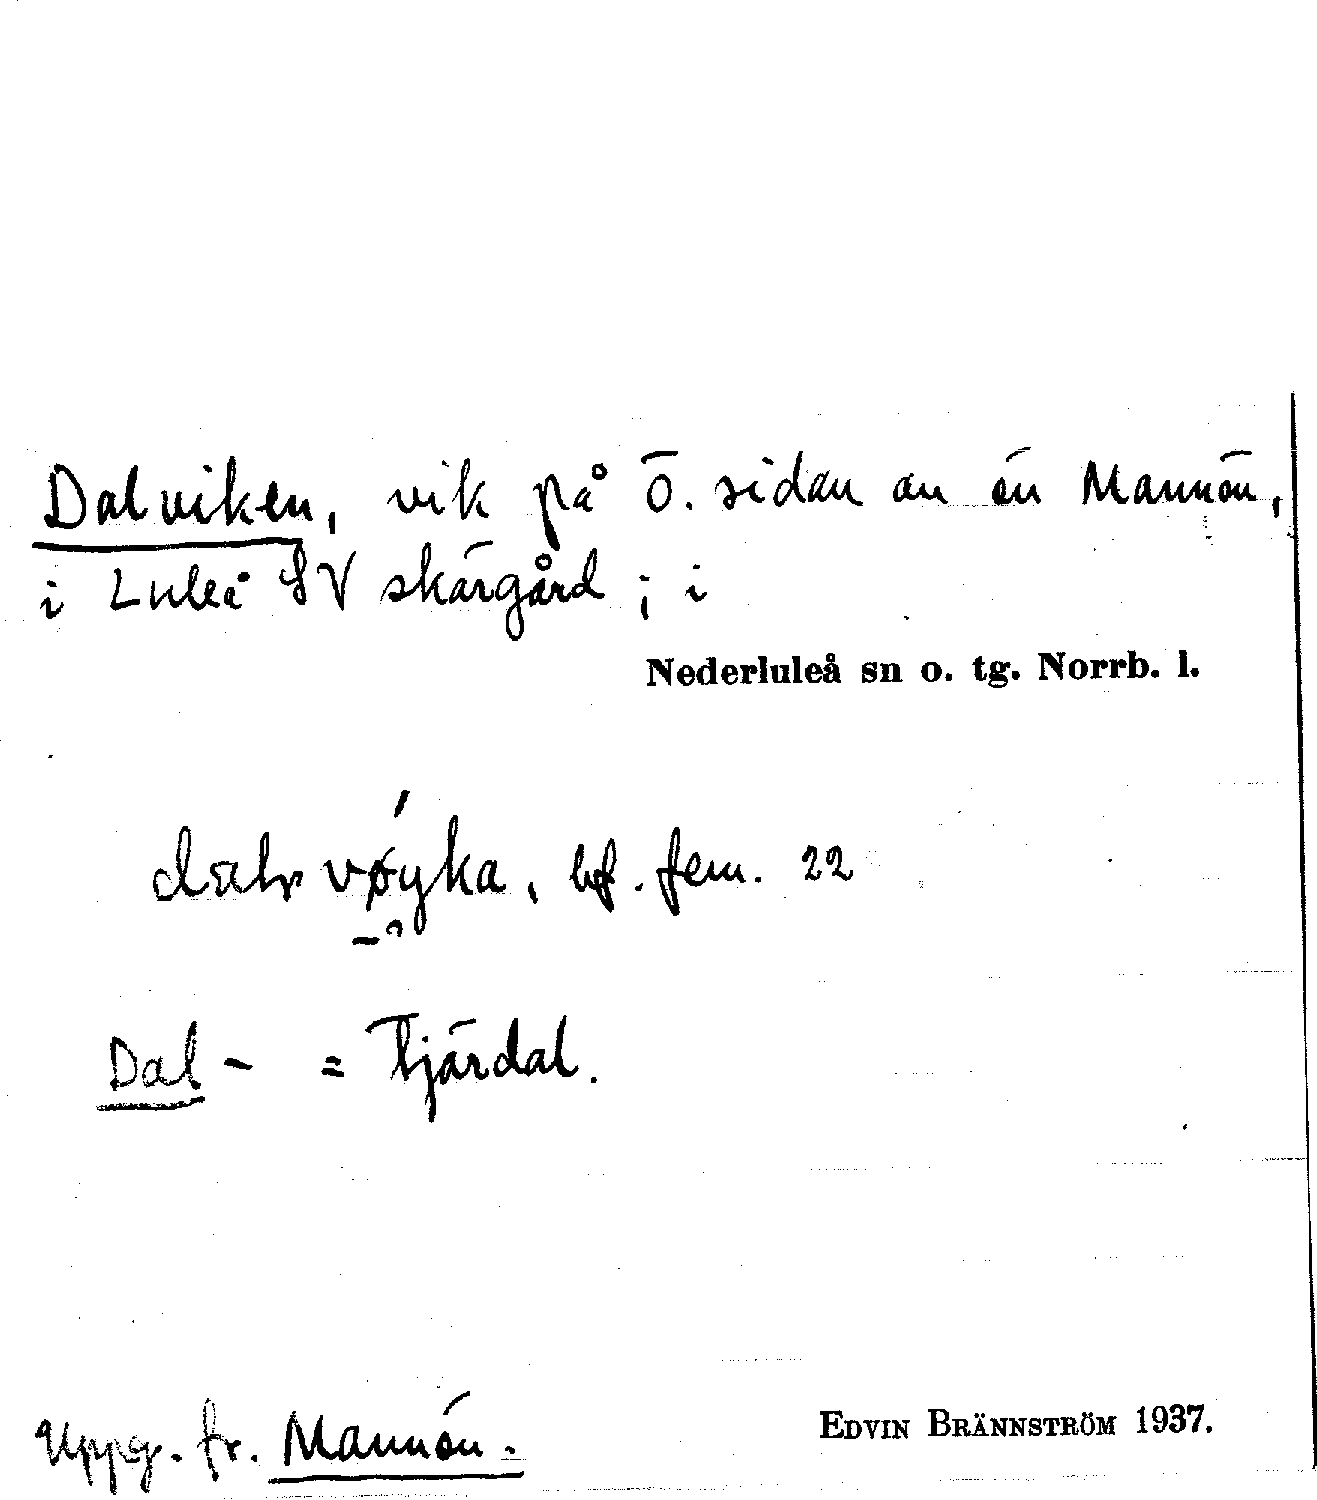 Dalviken, vik på Ö. sidan av ön Mannön,
i Luleå SV skärgård ; i
Nederluleå sn o. tg. Norrb. l.
vøyka, bf. fem. 22
Dal- = Tjärdal.
Uppg. fr. Mannön.
EDVIN BRÄNNSTRÖM 1937.